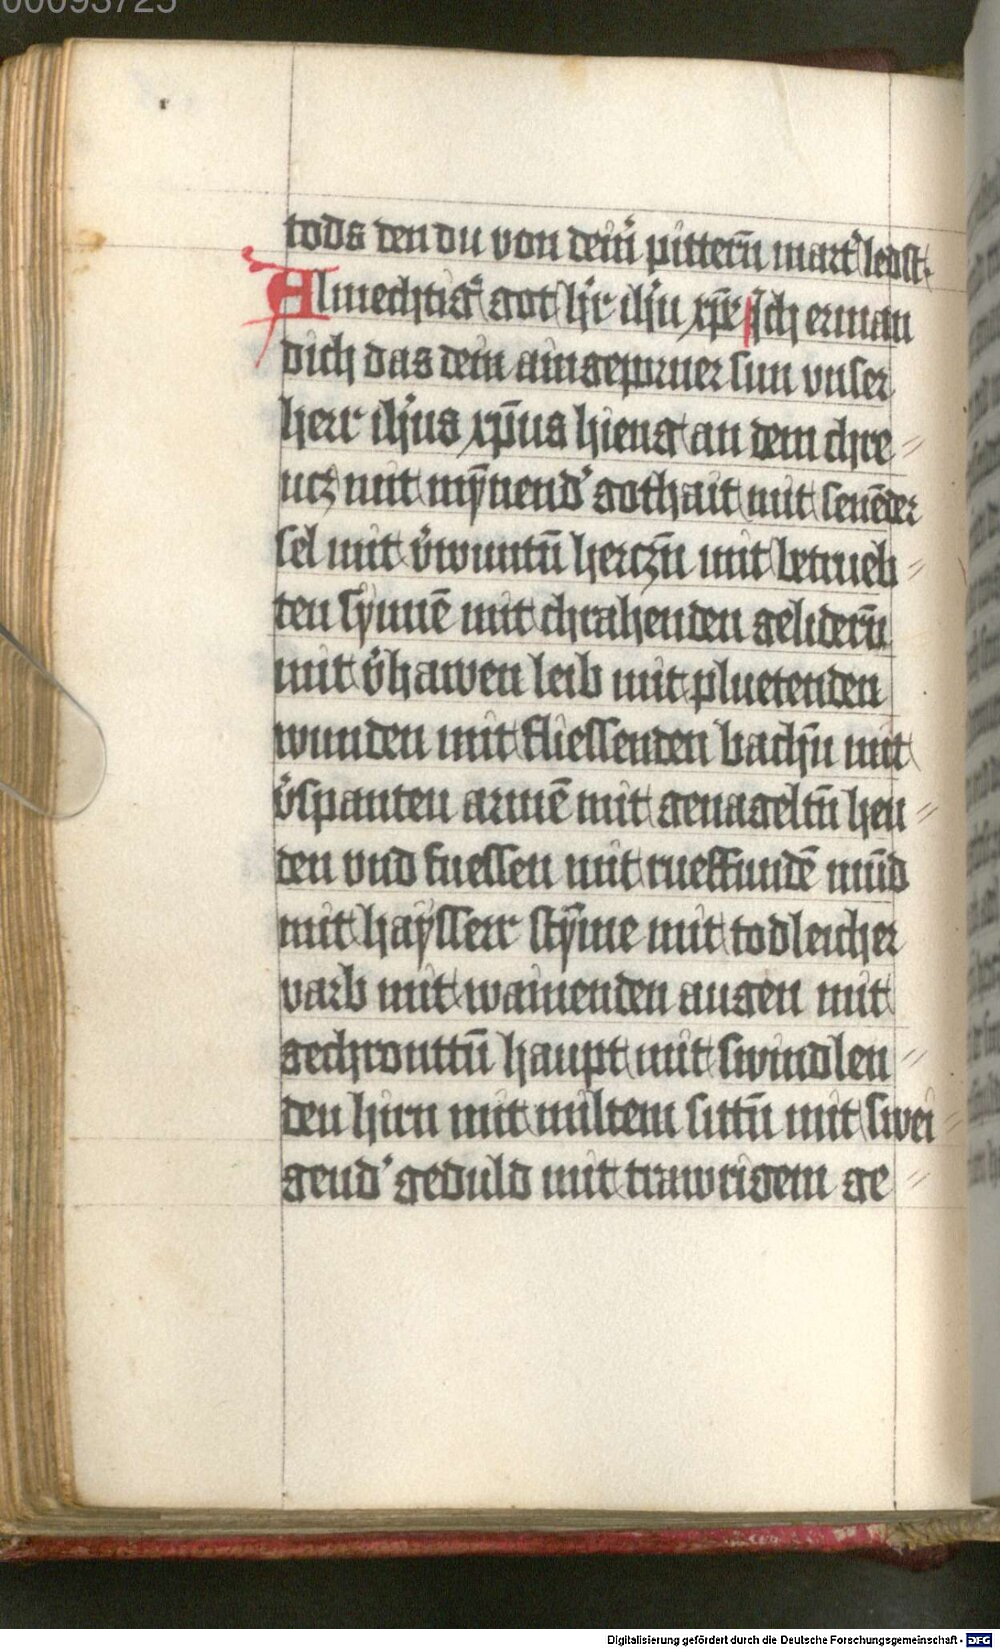 00093725
tods den du von deinˀ pittern̄ martˀ ledst.
Almechtigˀ got hˀr ihˀu xp̄e Ich erman
dich das dein aingeporner sun vnser
herr ihˀus xp̄us hieng an dem chre⸗
ucz mit mȳnendˀ gothait mit senēder
sel mit vˀwuntn̄ herczn̄ mit betrueb⸗
ten synnē mit chrahenden gelidern̄
mit vˀhawen leib mit pluetenden
wunden mit fliessenden bachn̄ mit
vˀspanten armē mit genageltn̄ hen⸗
den vnd fuessen mit rueffundē mūd
mit haysserr stȳme mit todleicher
varb mit wainenden augen mit
gechronttn̄ haupt mit swindlen⸗
den hirn mit miltem sittn̄ mit swei⸗
gendˀ geduld mit trawrigem ge⸗
Digitalisierung gefördert durch die Deutsche Forschungsgemeinschaft - DFG